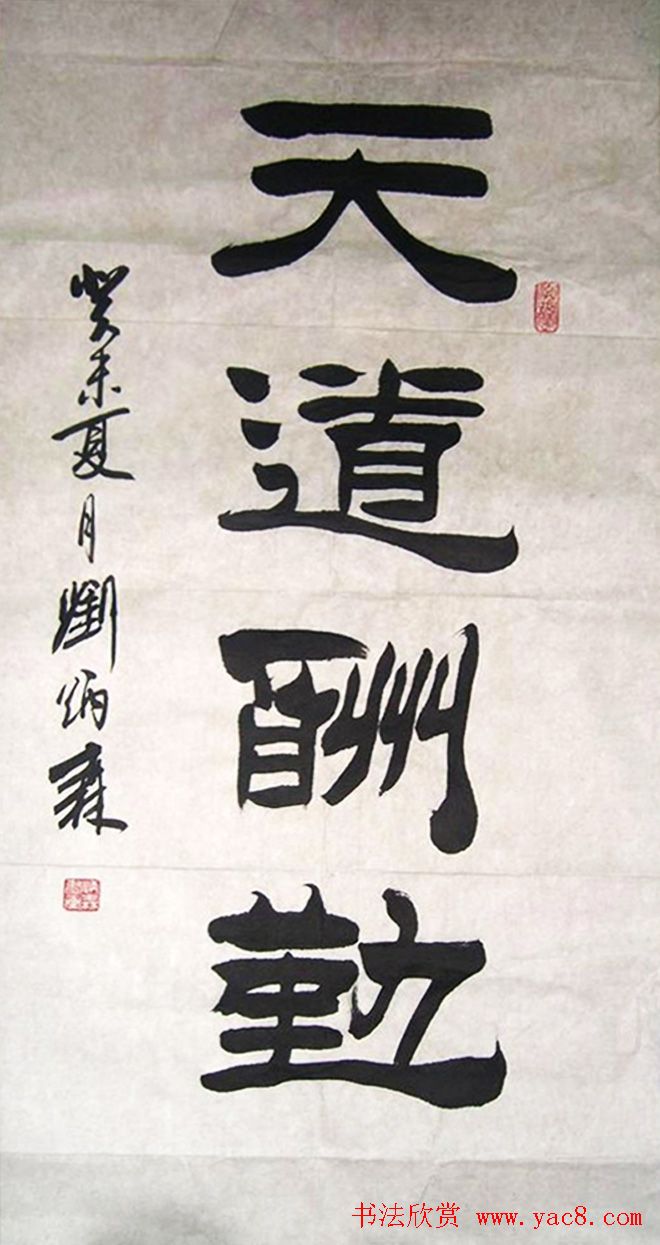 天道酬勤
癸未夏月劉炳森
书法欣赏 www.yac8.com